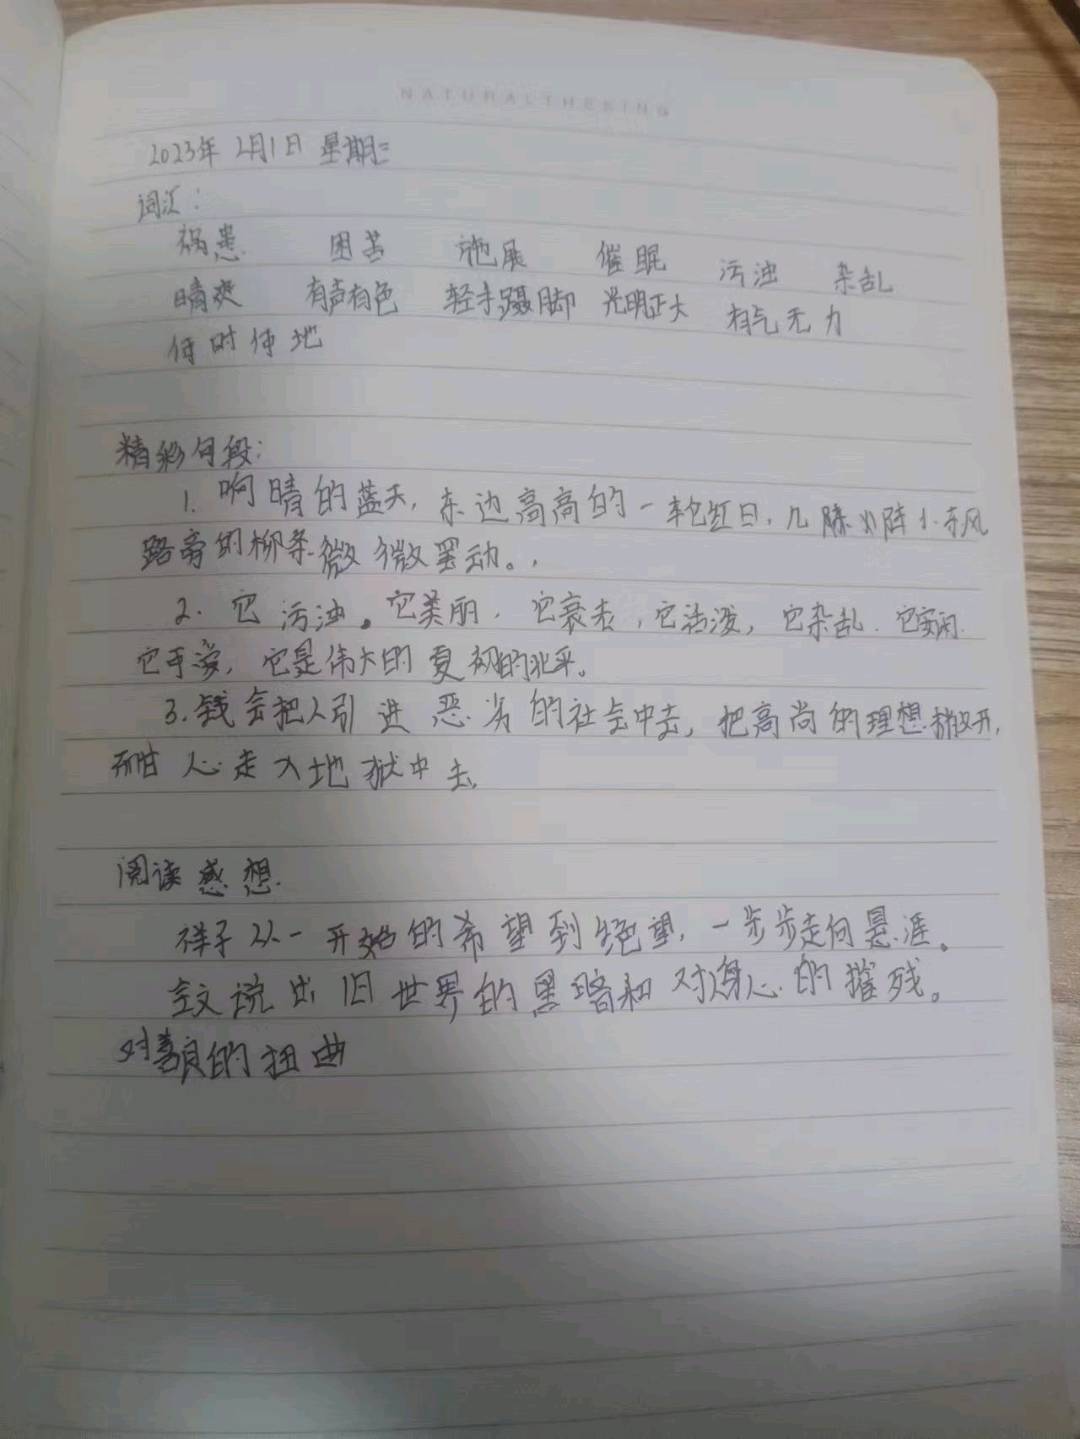 NATURALTHEKING
2023年 2月1日 星期三
词汇：
祸患 困苦 施展 催眠 污浊 杂乱
晴爽 有声有色 轻手蹑脚 光明正大 有气无力
何时何地
精彩句段：
1. 响晴的蓝天，东边高高的一轮红日，几阵小东风
路旁的柳条微微罢动。
2. 它污浊。它美丽．它衰老，它活泼，它杂乱．它安闲．
它可爱，它是伟大的夏初的北平。
3. 钱会把人引进恶劣的社会中去，把高尚的理想撇开，
而甘心走入地狱中去
阅读感想
祥子从一开始的希望到绝望，一步步走向悬涯。
全文说出旧世界的黑暗和对身心的摧残。
对善良的扭曲